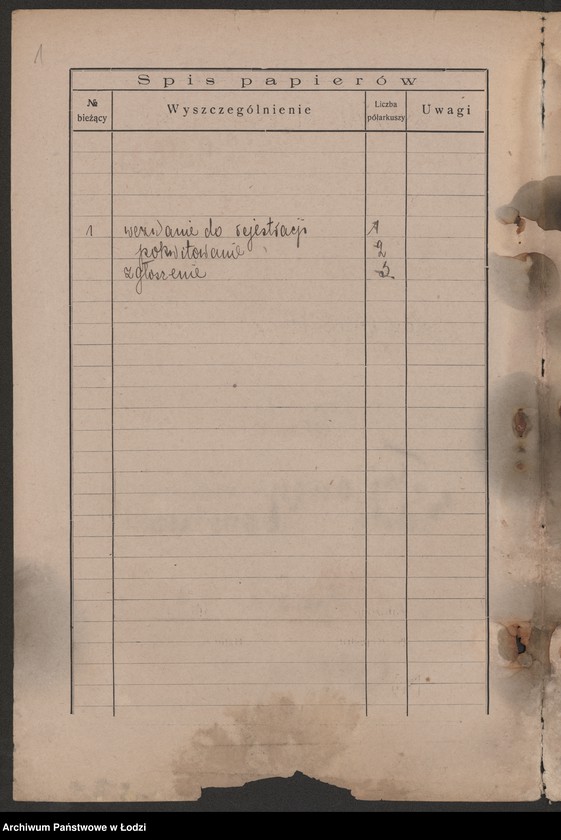 1
Spis papierów
№ bieżący Wyszczególnienie Liczba półarkuszy Uwagi
1 wezwanie do rejestracji 1
pokwitowanie 2
zgłoszenie 3
Archiwum Państwowe w Łodzi